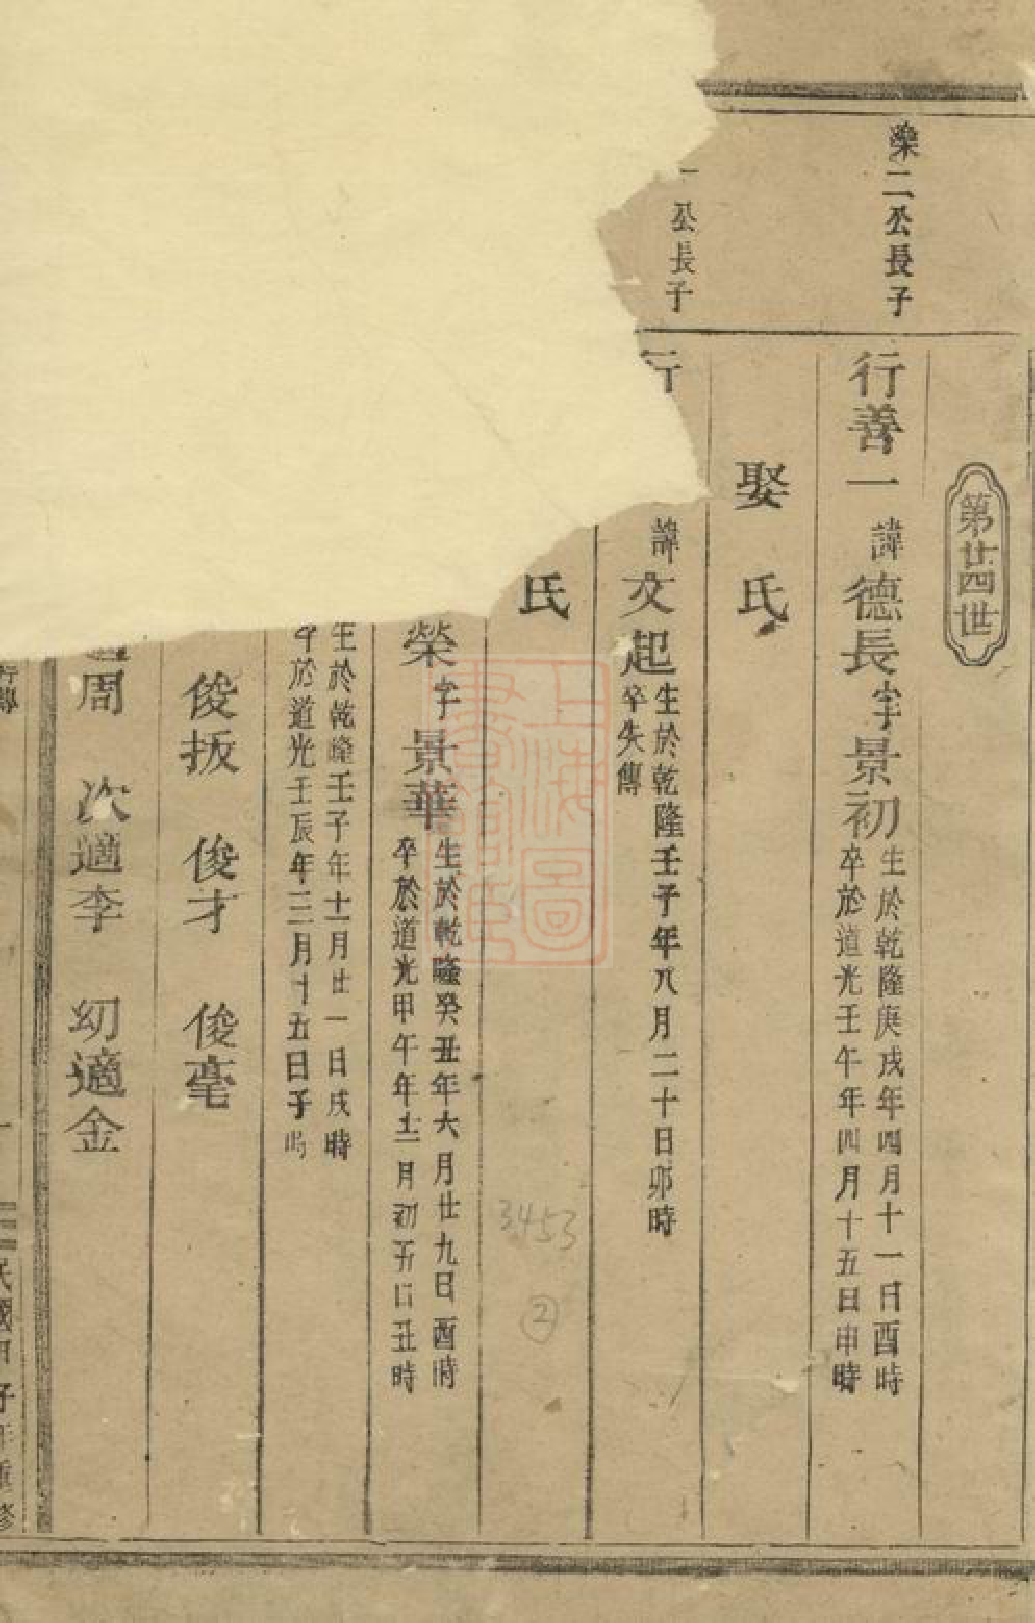 第廿四世
榮二公長子
行善一 諱德長字景初 生於乾隆庚戌年四月十一日酉時
卒於道光壬午年四月十五日申時
娶 氏
公長子
行 諱文起 生於乾隆壬子年八月二十日卯時
卒失傳
氏
榮字景華 生於乾隆癸丑年六月廿九日酉時
卒於道光甲午年十二月初五日丑時
生於乾隆壬子年十一月廿一日戌時
卒於道光壬辰年三月十五日子時
俊扳 俊才 俊亳
適周 次適李 幼適金
行傳
民國甲子年重修
上海圖書館藏
3453
②